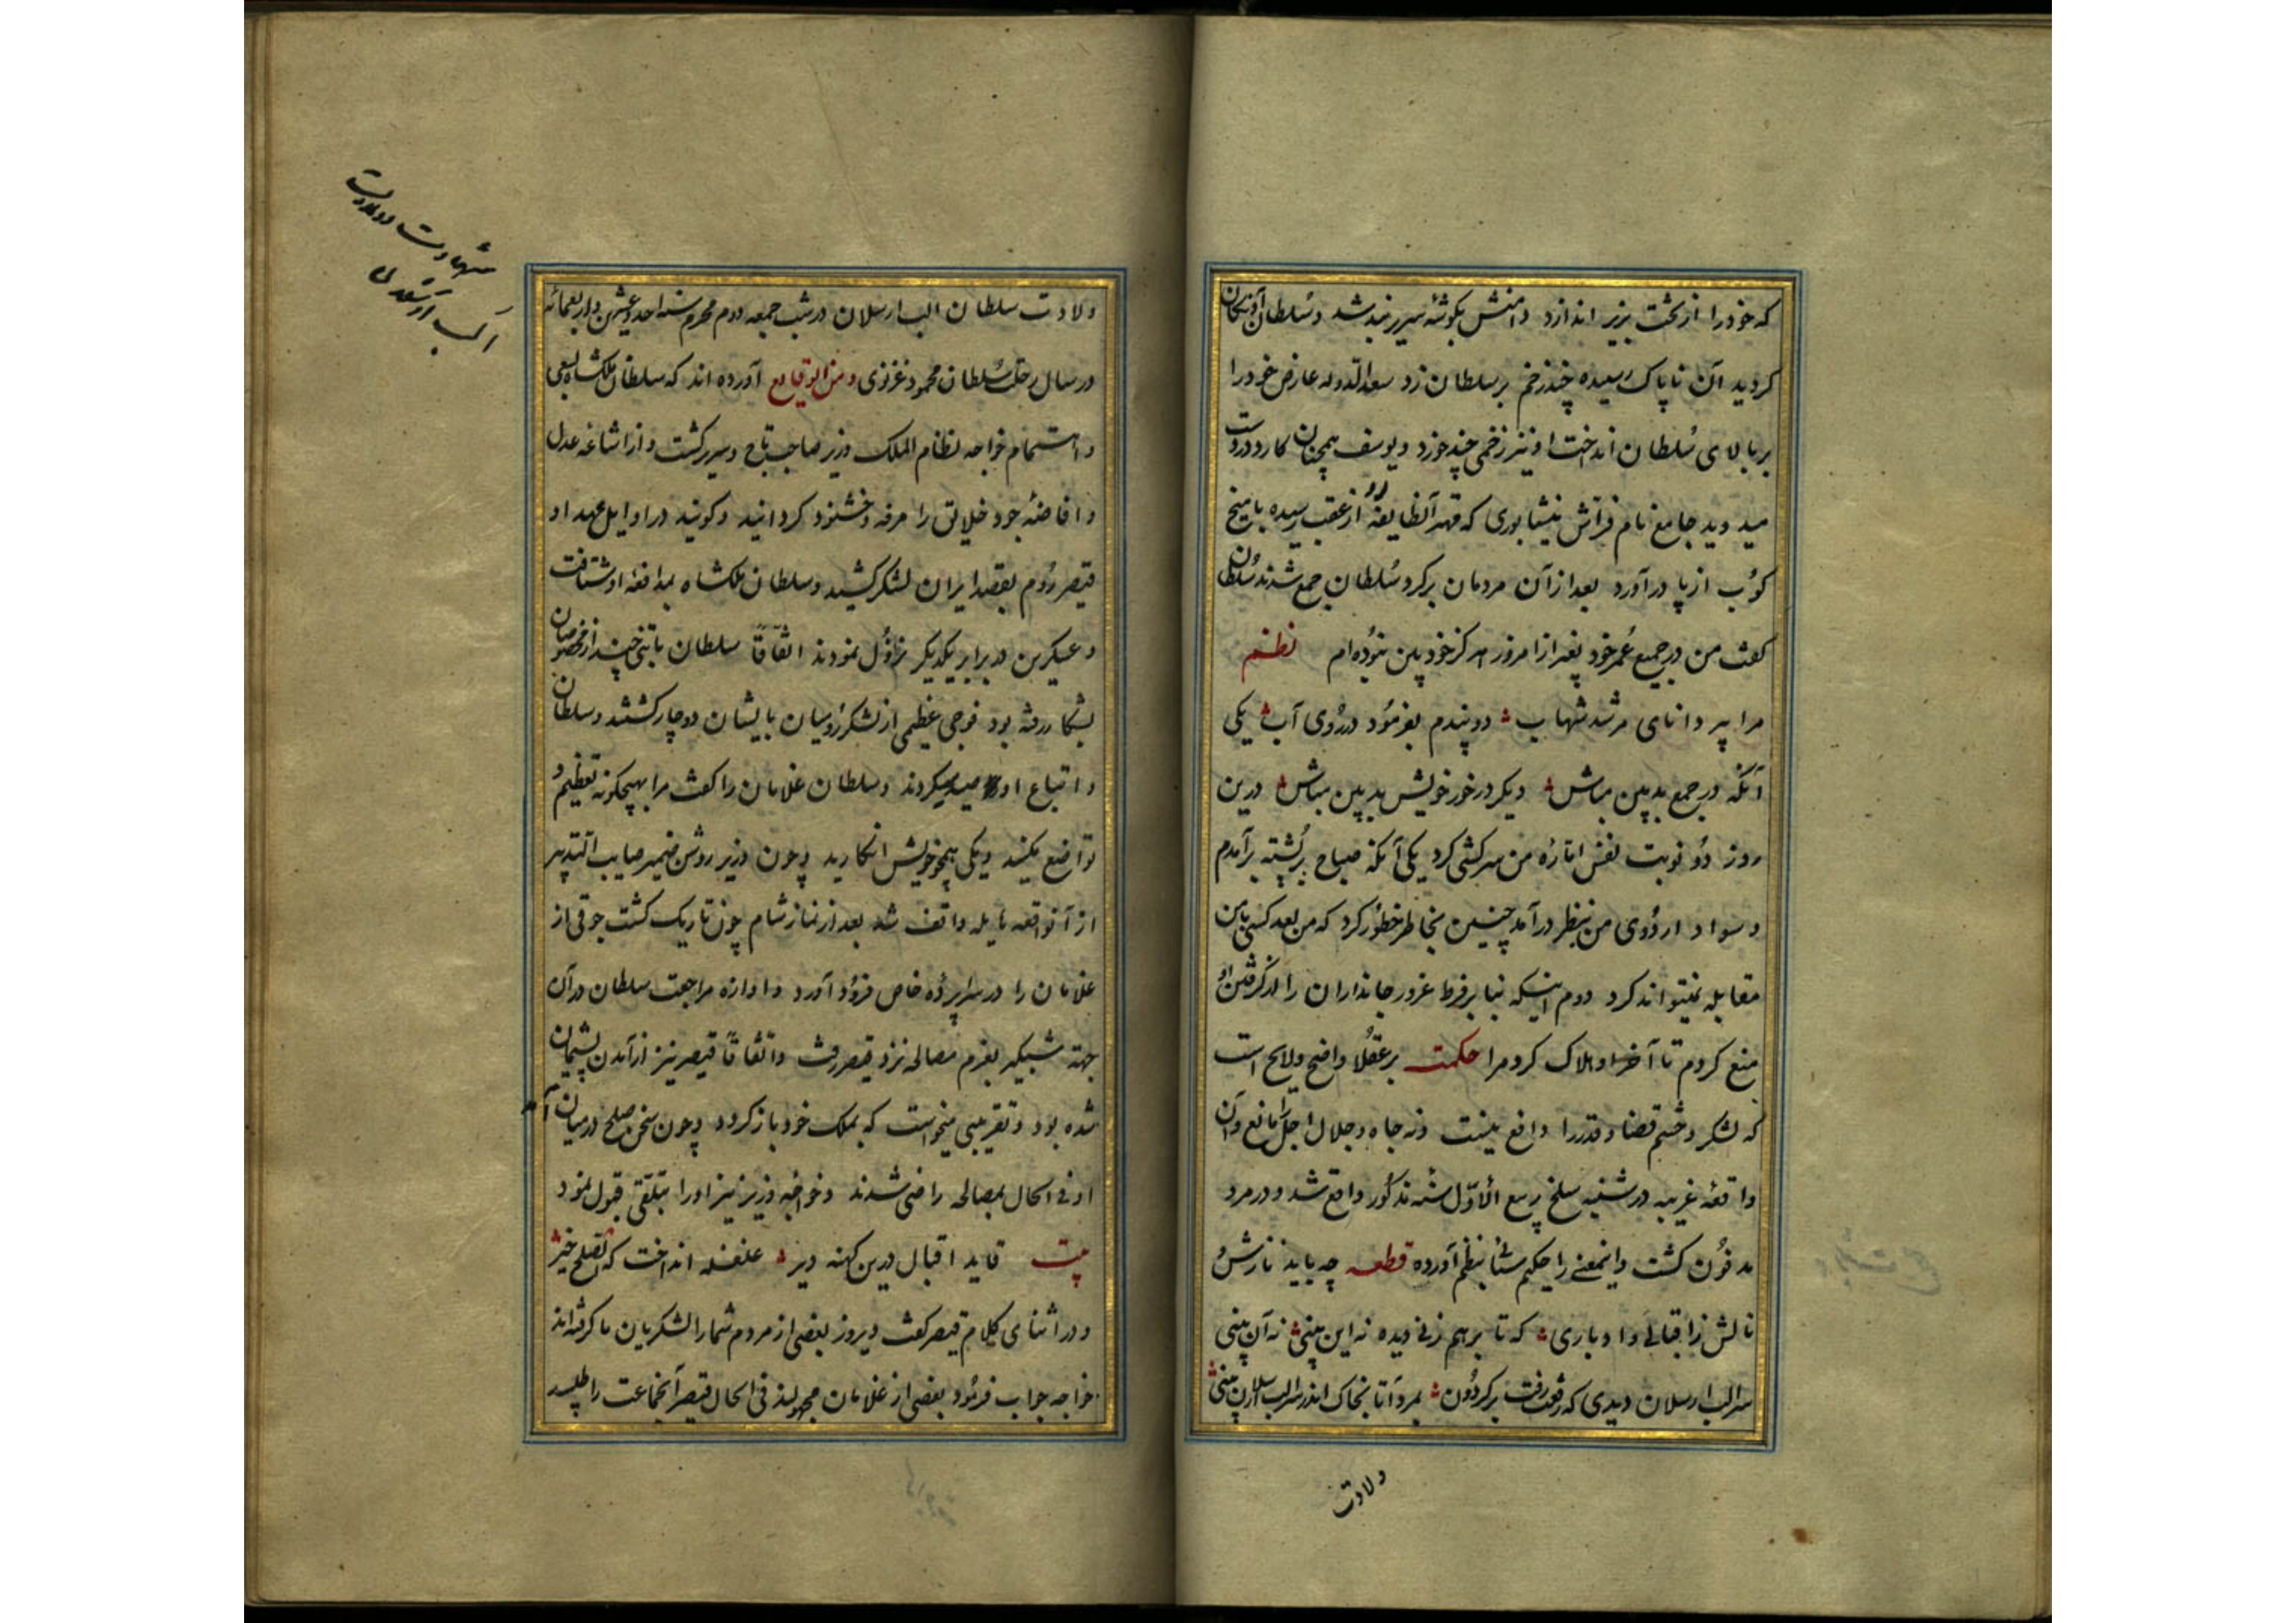 که خود را از تخت بزیر اندازد دامنش بکوشهٔ سریر بند شد و سُلطان از تخت
کردید آن ناپاک رسیده چند زخم بر سلطان زد سعد الدوله عارض خود را
بر بالای سُلطان انداخت او نیز زخمی چند خورد و یوسف همچنان کارد در دست
میدوید جامع نام فراش نیشابوری که مهتر آنطایفه بود از عقب رسیده با میخ
کوُب از پا درآورد بعد از آن مردمان بر کرد سُلطان جمع شدند سُلطان
کفت من در جمیع عُمر خود بغیر از امروز هرکز خود بین نبوُده ام نظم
مرا پیر دانای مرشد شهاب دو پندم بفرموُد در رُوی آب یکی
آنکه در جمع بدبین مباش دیکر در خور خویش بدبین مباش درین
روز دوُ نوبت نفس امّاره من سرکشی کرد یکی آنکه صباح بر پُشته برآمدم
و سواد اردوُی من بنظر درآمد چنین بخاطر خطوُر کرد که من بعد کسی با من
مقابله نمیتواند کرد دوم اینکه بنا بر فرط غرور جانداران را از کرفتن او
منع کردم تا آخر او هلاک کرد مرا حکمت بر عقلا واضح و لایح است
که لشکر و حشم قضا و قدر را دافع نیست و نه جاه و جلال اجل را مانع و آن
واقعهٔ غریبه در شنبه سلخ ربیع الاوّل سنه مذکوُر واقع شد و در مرو
مدفوُن کشت و اینمعنی را حکیم سنائی بنظم آورده قطعه چه باید نازش و
نالش ز اقبالی و ادباری که تا برهم زنی دیده نه این بینی نه آن بینی
سر الب ارسلان دیدی که رفعت رفت بر کردوُن بمرو آ تا بخاک اندر سر الب ارسلان بینی
ولادت
شهادت و ولادت
الب ارسلان
ولادت سلطان الب ارسلان در شب جمعه دوم محرم سنه احد و عشرین و اربعمائه
در سال رحلت سُلطان محمود غزنوی و من الوقایع آورده اند که سلطان ملکشاه بسعی
و اهتمام خواجه نظام الملک وزیر صاحب تاج و سریر کشت و از اشاعهٔ عدل
و افاضهٔ جود خلایق را مرفه و خشنود کردانید و کویند در اوایل عهد او
قیصر روُم بقصد ایران لشکر کشید و سلطان ملکشاه بمدافعهٔ او شتافت
و عسکرین در برابر یکدیکر نزوُل نمودند اتفاقاً سلطان با تنی چند از مخصوصان
بشکار رفته بود فوجی عظیمی از لشکر روُمیان بایشان دوچار کشتند و سلطان
و اتباع او را صید کردند و سلطان غلامان را کفت مرا بهیچکونه تعظیم و
تواضع مکنید و یکی همچو خویش انکارید و چون وزیر روشن ضمیر صایب التدبیر
از آنواقعه هایله واقف شد بعد از نماز شام چون تاریک کشت جوقی از
غلامان را در سراپرده خاص فروُد آورد و اوازه مراجعت سلطان در آن
جهته شبکیر بعزم مصالحه نزد قیصر رفت و اتفاقاً قیصر نیز از آمدن پشیمان
شده بود و تقریبی میخواست که بملک خود باز کردد و چون سخن صلح در میان آمد
او فی الحال بمصالحه راضی شدند و خواجه وزیر نیز او را بتلقی قبول نمود
بیت قاید اقبال درین کهنه دیر غلغله انداخت که الصلح خیر
و در اثنای کلام قیصر کفت دیروز بعضی از مردم شما را لشکریان ما کرفته اند
خواجه جواب فرموُد بعضی از غلامان مجهولند فی الحال قیصر آنجماعت را طلبید